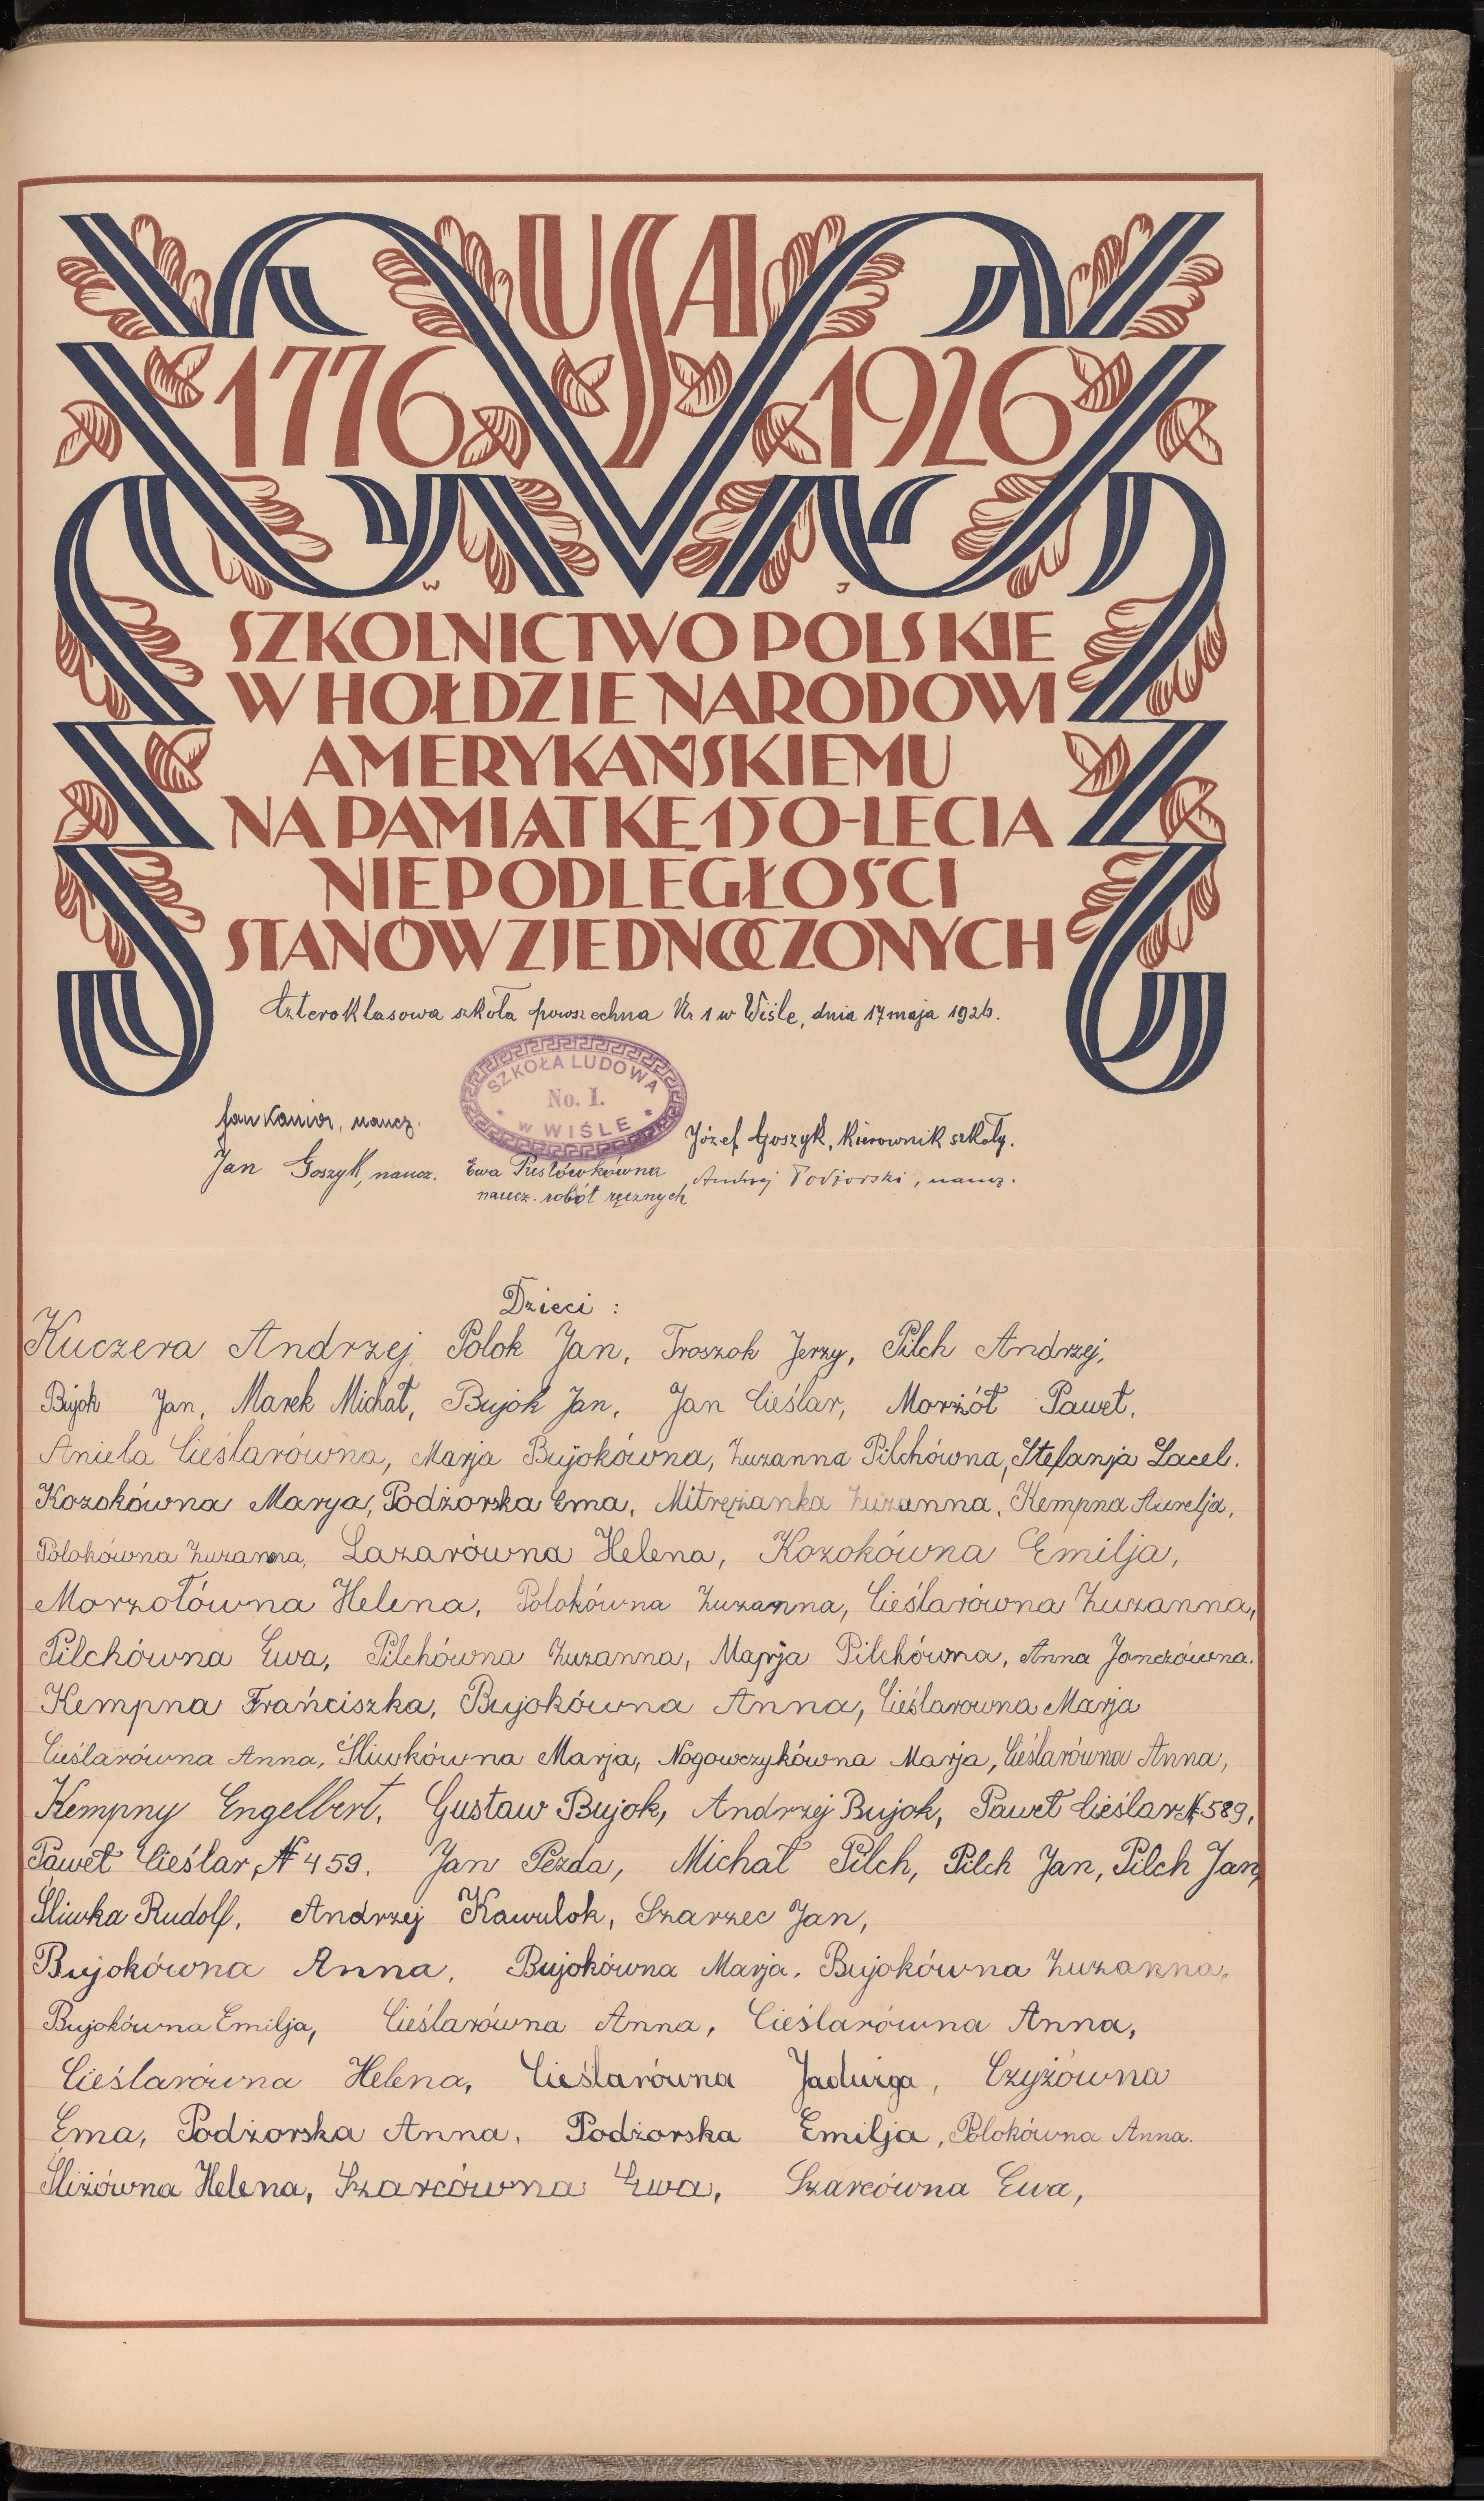 USA
1776 1926
W J
SZKOLNICTWO POLSKIE
W HOŁDZIE NARODOWI
AMERYKAŃSKIEMU
NA PAMIĄTKĘ 150-LECIA
NIEPODLEGŁOŚCI
STANÓW ZJEDNOCZONYCH
Czteroklasowa szkoła powszechna Nr 1 w Wiśle, dnia 17 maja 1926.
SZKOŁA LUDOWA
No. I.
w WIŚLE
Jan Kanior, naucz.
Józef Goszyk, kierownik szkoły.
Jan Goszyk, naucz. Ewa Pustówkówna Andrzej Podżorski, naucz.
naucz. robót ręcznych
Dzieci :
Kuczera Andrzej, Polok Jan, Troszok Jerzy, Pilch Andrzej,
Bujok Jan, Marek Michał, Bujok Jan, Jan Cieślar, Morżół Paweł,
Aniela Cieślarówna, Marja Bujokówna, Zuzanna Pilchówna, Stefanja Lacel.
Kozokówna Marya, Podżorska Ema, Mitrężanka Zuzanna, Kempna Aurelja,
Polokówna Zuzanna, Lazarówna Helena, Kozokówna Emilja,
Morzołówna Helena, Polokówna Zuzanna, Cieślarówna Zuzanna,
Pilchówna Ewa, Pilchówna Zuzanna, Marja Pilchówna, Anna Jonczówna.
Kempna Frańciszka, Bujokówna Anna, Cieślarowna Marja
Cieślarówna Anna, Śliwkówna Marja, Nogowczykówna Marja, Cieślarówna Anna,
Kempny Engelbert, Gustaw Bujok, Andrzej Bujok, Paweł Cieślar № 589,
Paweł Cieślar, № 459. Jan Pezda, Michał Pilch, Pilch Jan, Pilch Jan,
Śliwka Rudolf, Andrzej Kawulok, Szarzec Jan,
Bujokówna Anna, Bujokówna Marja, Bujokówna Zuzanna,
Bujokówna Emilja, Cieślarówna Anna, Cieślarówna Anna,
Cieślarówna Helena, Cieślarówna Jadwiga, Czyżówna
Ema, Podżorska Anna, Podżorska Emilja, Polokówna Anna.
Śliżówna Helena, Szarcówna Ewa, Szarcówna Ewa,